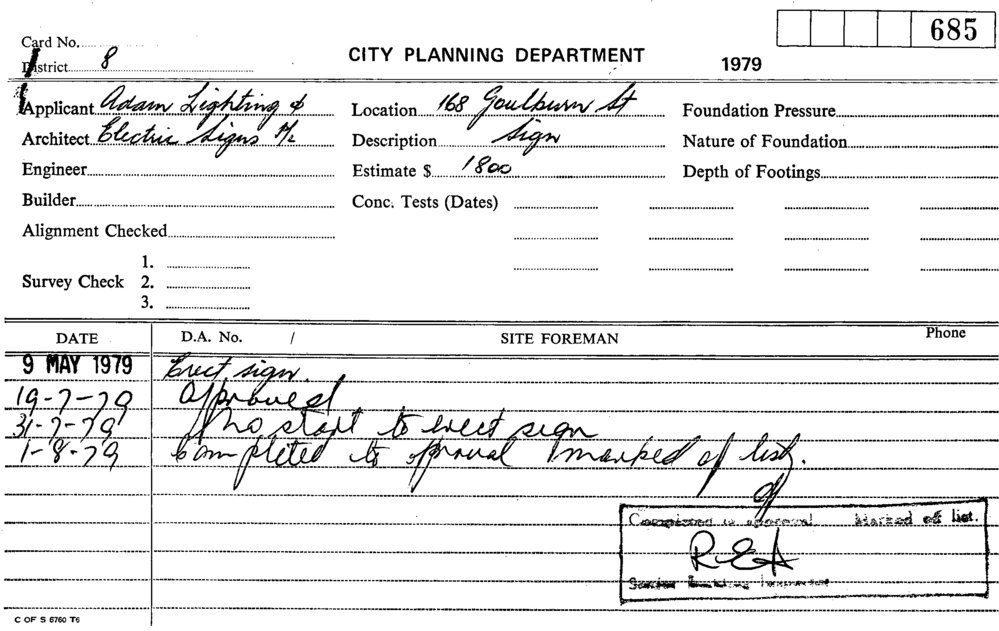 685
Card No.
CITY PLANNING DEPARTMENT
1979
District 8
Applicant Adam Lighting &
Location 168 Goulburn St
Foundation Pressure
Architect Electric Signs P/L
Description Sign
Nature of Foundation
Engineer
Estimate $ 1800
Depth of Footings
Builder
Conc. Tests (Dates)
Alignment Checked
1.
Survey Check 2.
3.
DATE D.A. No. / SITE FOREMAN Phone
9 MAY 1979 Erect sign.
19-7-79 Approved
31-7-79 No start to erect sign
1-8-79 Completed to aproval marked of list.
Completed to approval Marked off list.
REA
Senior Building Inspector
C OF S 6760 T6